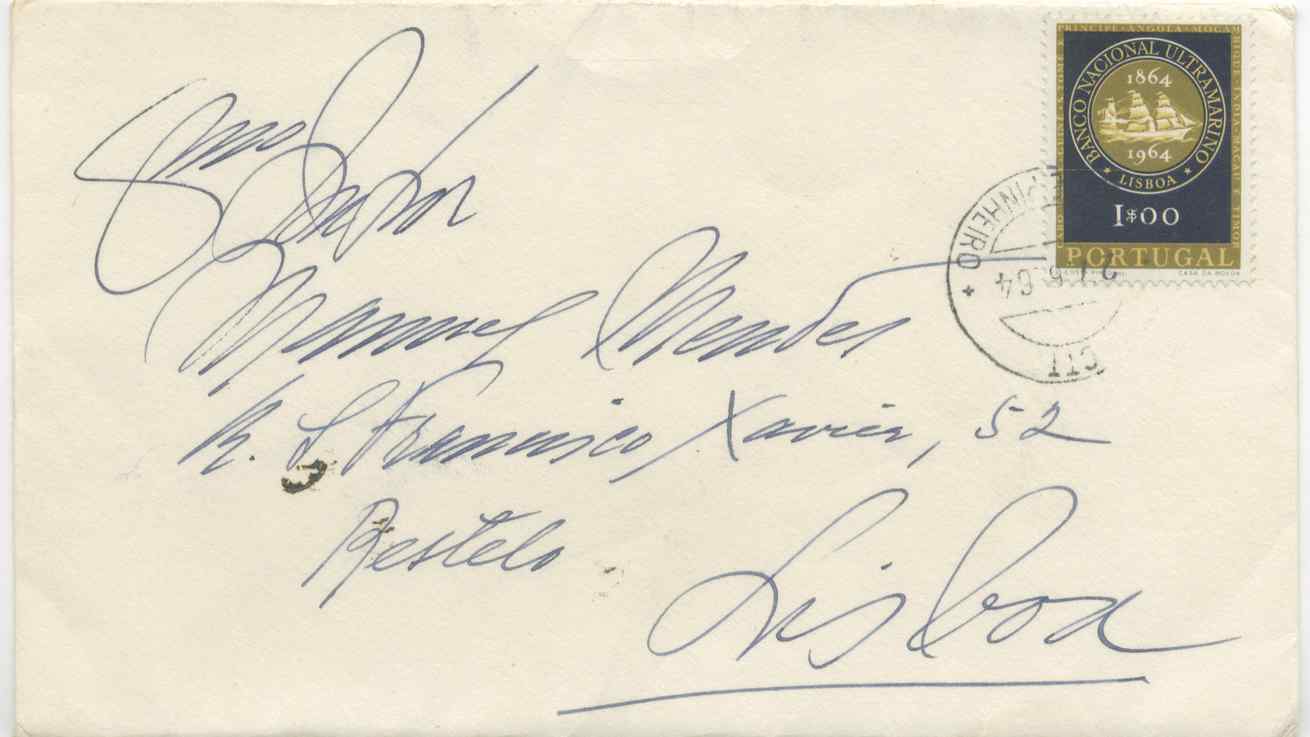 Exmo
Senhor
Manuel Mendes
R. S. Francisco Xavier, 52
Restelo
Lisboa
PRINCIPE · ANGOLA · MOÇAMBIQUE · INDIA · MACAU E TIMOR
BANCO NACIONAL ULTRAMARINO
1864
1964
* LISBOA *
1$00
PORTUGAL
CASA DA MOEDA
PINHEIRO *
64
CTT